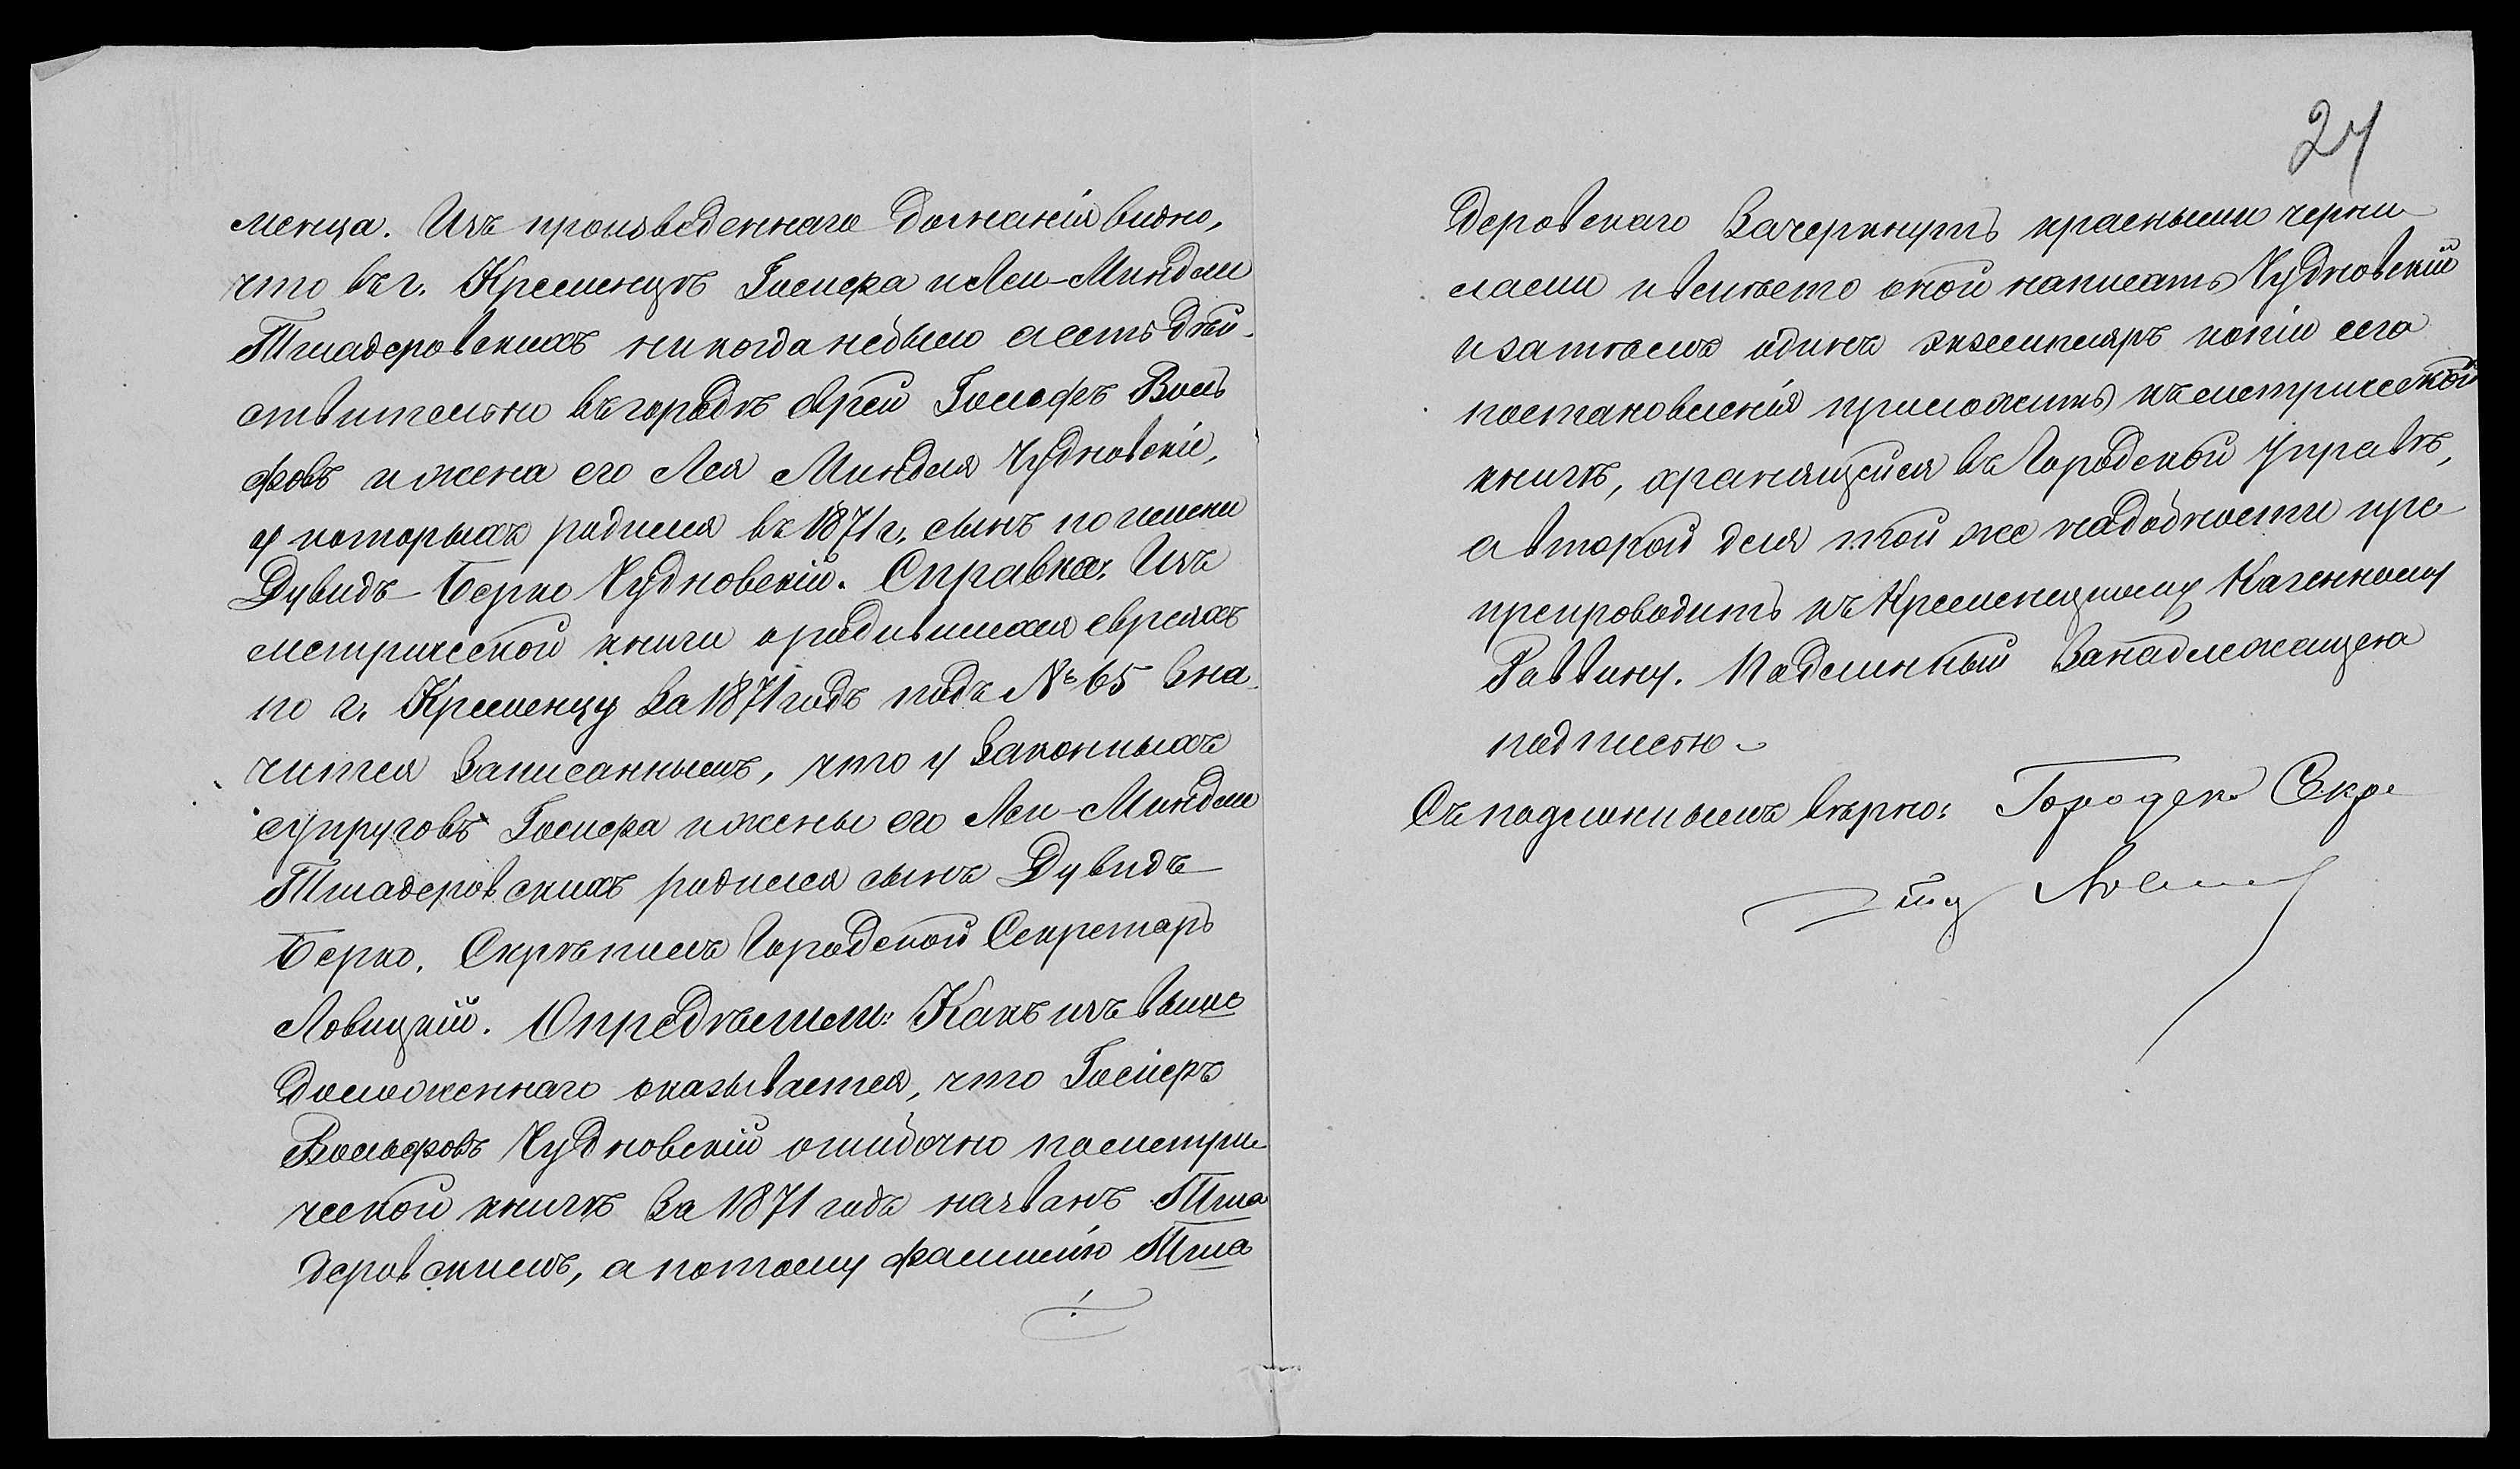 менца. Изъ произведеннаго дознанія видно,
что въ г. Кременцѣ Іосифа и Леи-Миндли
Тшадеровскихъ никогда небыло а есть дѣй-
ствительно въ городѣ еврей Іосифъ Воль
фовъ и жена его Лея Миндля Чудновскіе,
у которыхъ родился въ 1871 г. сынъ по имени
Дувидъ-Берко Чудновскій. Справка: Изъ
метрической книги о родившихся евреяхъ
по г. Кременцу за 1871 годъ подъ № 65 зна-
чится записаннымъ, что у законныхъ
супруговъ Іосифа и жены его Леи-Миндли
Тшадеровскихъ родился сынъ Дувидъ
Берко. Скрѣпилъ Городской Секретарь
Ловицкій. Опредѣлили: Какъ изъ выше
доложеннаго оказывается, что Іосифъ
Вольфовъ Чудновскій ошибочно по метри
ческой книгѣ за 1871 годъ названъ Тша
деровскимъ, а потому фамилію Тша
24
деровскаго зачеркнуть красными черни
лами и вмѣсто оной написать Чудновскій
и затѣмъ одинъ экземпляръ копіи сего
постановленія приложить къ метрической
книгѣ, хранящейся въ Городской Управѣ,
а второй для той же надобности пре
проводить къ Кременецкому Казенному
Раввину. Подлинный за надлежащею
подписью.
Съ подлиннымъ вѣрно: Городск. Секр.